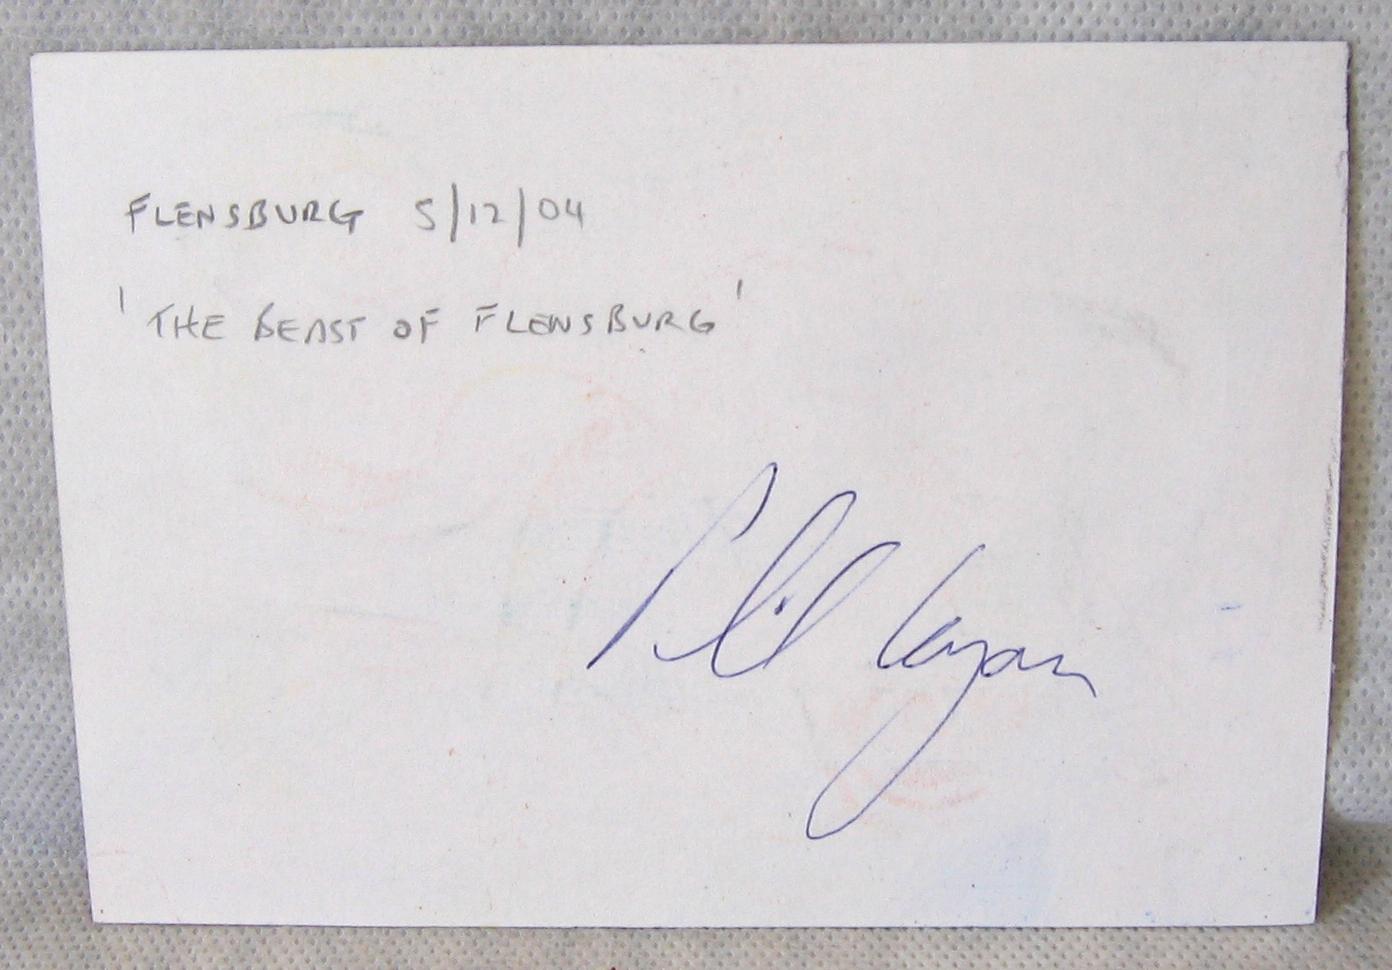 FLENSBURG 5/12/04
'THE BEAST OF FLENSBURG'
Phil